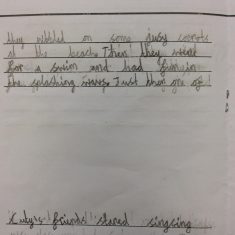 they nibbled on some juicy carrots
at the beach. Then they went
for a swim and had fun in
the splashing waves. Just then one of
Lucy's friends stared singsing